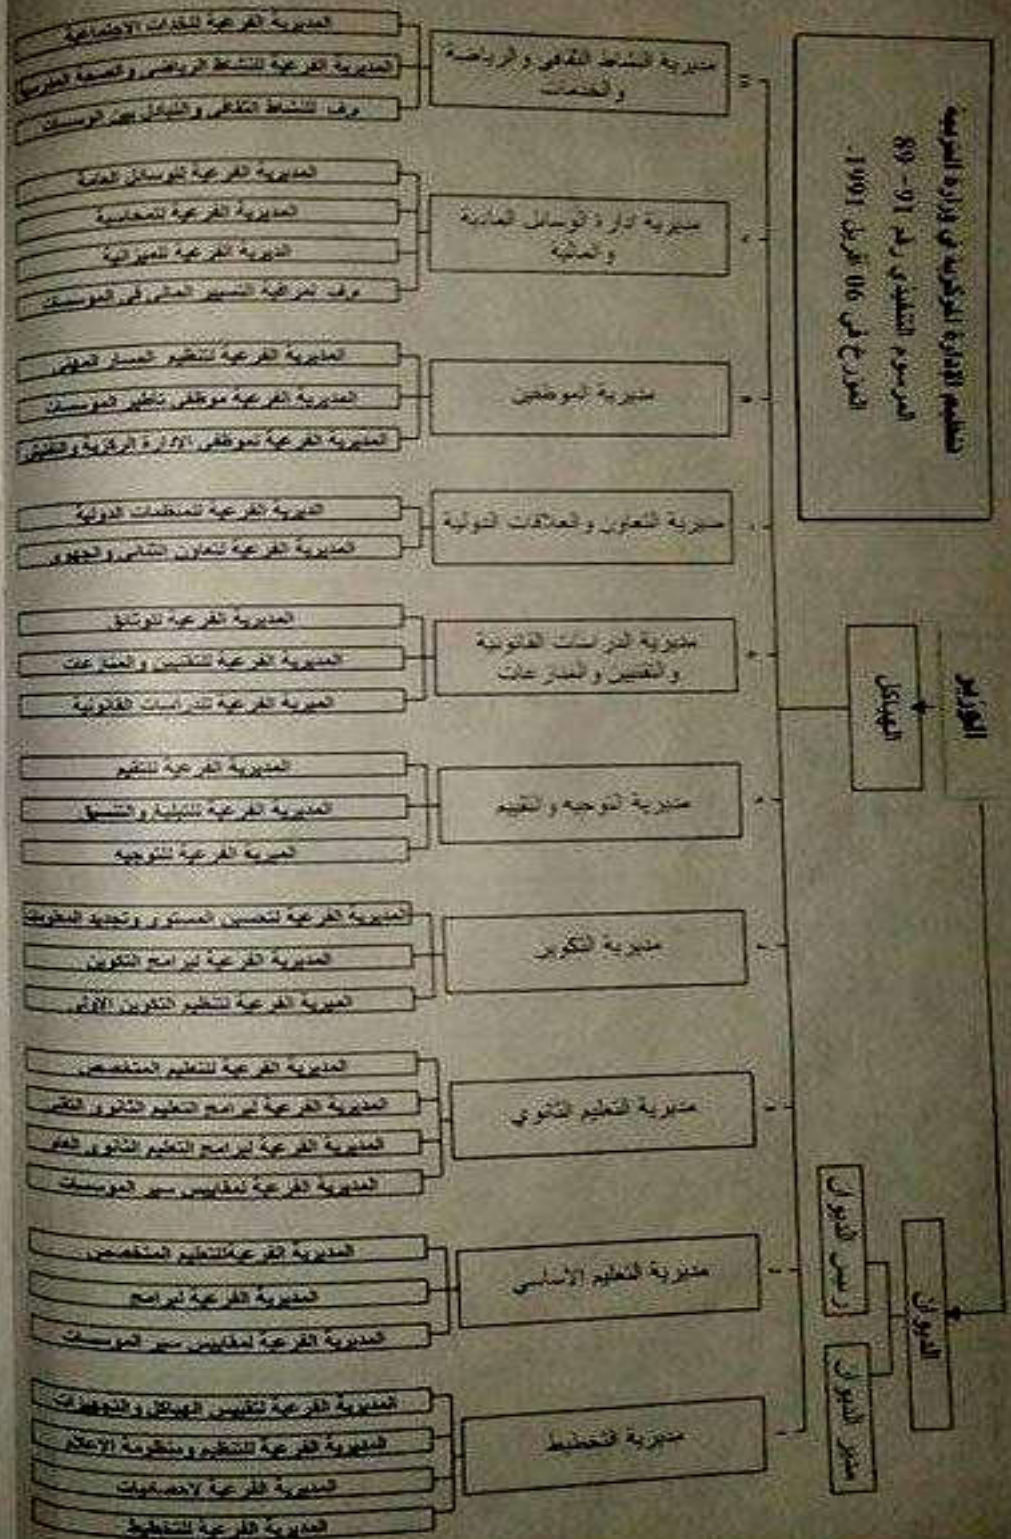 تنظيم الإدارة المركزية في وزارة التربية
المرسوم التنفيذي رقم 91 - 89
المؤرخ في 06 أفريل 1991 -
الوزير
الهياكل
الديوان
رئيس الديوان
مدير الديوان
مديرية النشاط الثقافي والرياضة
والخدمات
المديرية الفرعية للخدات الاجتماعية
المديرية الفرعية للنشاط الرياضي والصحة المدرسية
م ف للنشاط الثقافي والتبادل بين الموسسات
مديرية ادارة الوسائل المادية
والمالية
المديرية الفرعية للوسائل العامة
المديرية الفرعية للمحاسبة
المديرية الفرعية للميزانية
م ف لمراقبة التسيير المالي في الموسسات
مديرية الموظفين
المديرية الفرعية لتنظيم المسار المهني
المديرية الفرعية موظفي تأطير الموسسات
المديرية الفرعية لموظفي الإدارة المركزية والتفتيش
مديرية التعاون والعلاقات الدولية
المديرية الفرعية للمنظمات الدولية
المديرية الفرعية لتعاون الثنائي والجهوي
مديرية الدراسات القانونية
والتقنين والمنازعات
المديرية الفرعية للوثائق
المديرية الفرعية للتقنين والمنازعات
المديرية الفرعية للدراسات القانونية
مديرية التوجيه والتقييم
المديرية الفرعية للتقيم
المديرية الفرعية للتبليغ والتنسيق
المديرية الفرعية للتوجيه
مديرية التكوين
المديرية الفرعية لتحسين المستوى وتجديد المعلومات
المديرية الفرعية لبرامج التكوين
المديرية الفرعية لتنظيم التكوين الأولي
مديرية التعليم الثانوي
المديرية الفرعية للتعليم المتخصص
المديرية الفرعية لبرامج التعليم الثانوي التقني
المديرية الفرعية لبرامج التعليم الثانوي العام
المديرية الفرعية لمقاييس سير الموسسات
مديرية التعليم الأساسي
المديرية الفرعية للتعليم المتخصص
المديرية الفرعية لبرامج
المديرية الفرعية لمقاييس سير الموسسات
مديرية التخطيط
المديرية الفرعية لتقييس الهياكل والتجهيزات
المديرية الفرعية للتنظيم ومنظومة الإعلام
المديرية الفرعية لاحصائيات
المديرية الفرعية للتخطيط